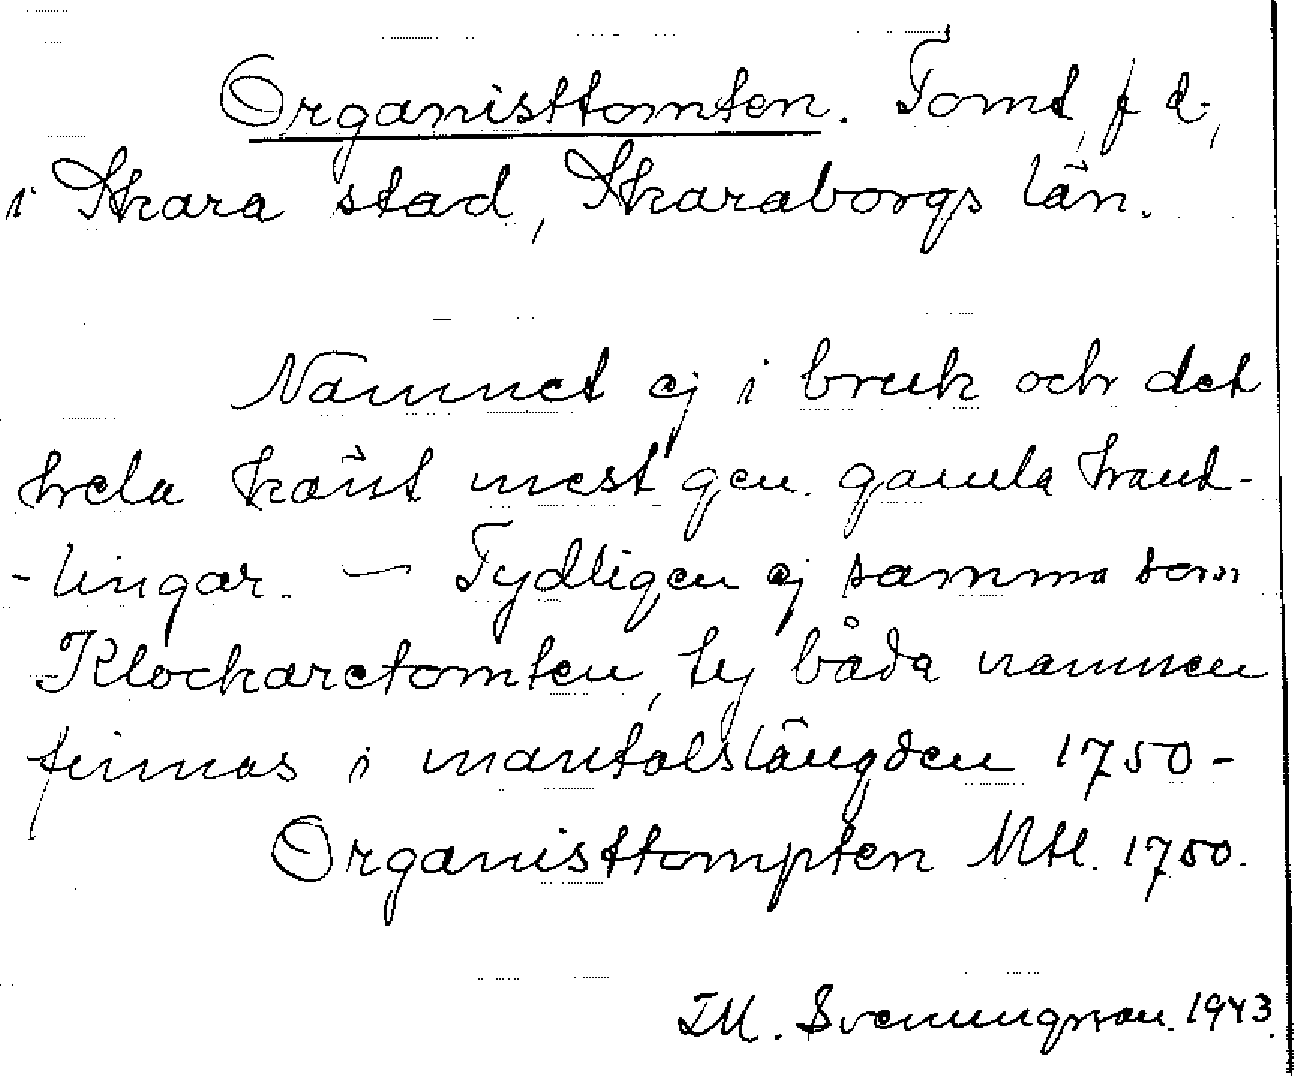 Organisttomten. Tomt, f d,
i Skara stad, Skaraborgs län.
Namnet ej i bruk och det
hela känt mest gen. gamla hand-
-lingar. — Tydligen ej samma som
Klockaretomten, ty båda namnen
finnas i mantalslängden 1750-
Organisttompten Mtl. 1750.
TM. Svenungsson. 1943.